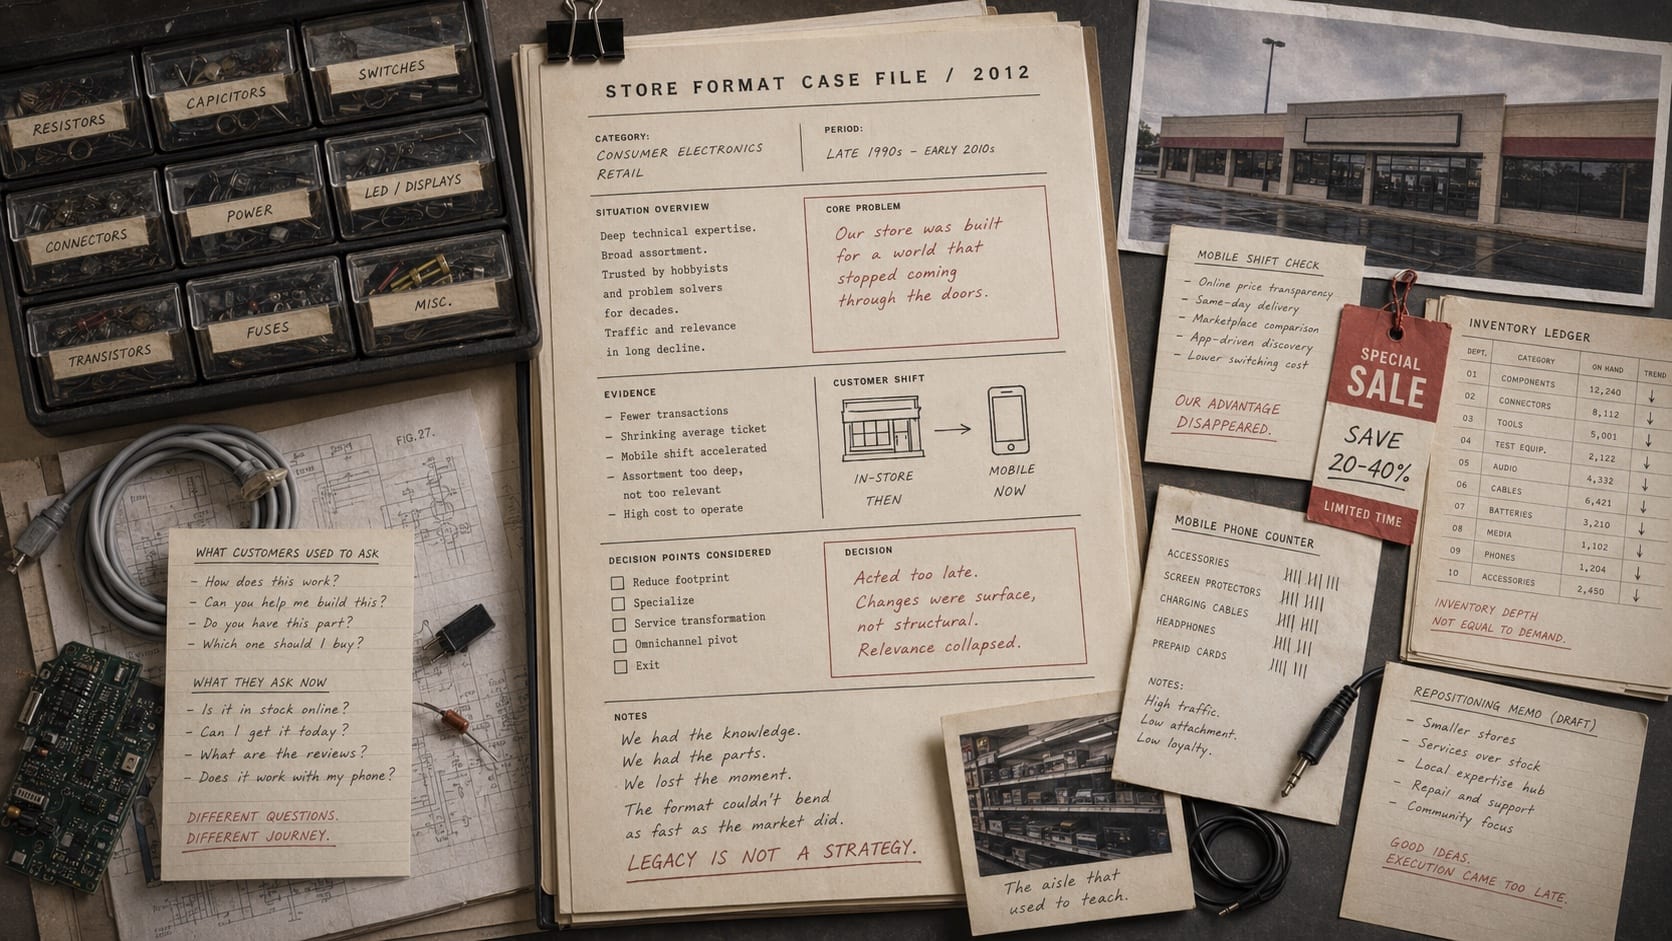 RESISTORS
CAPICITORS
SWITCHES
CONNECTORS
POWER
LED / DISPLAYS
TRANSISTORS
FUSES
MISC.
FIG.27.
WHAT CUSTOMERS USED TO ASK
– How does this work?
– Can you help me build this?
– Do you have this part?
– Which one should I buy?
WHAT THEY ASK NOW
– Is it in stock online?
– Can I get it today?
– What are the reviews?
– Does it work with my phone?
DIFFERENT QUESTIONS.
DIFFERENT JOURNEY.
STORE FORMAT CASE FILE / 2012
CATEGORY:
CONSUMER ELECTRONICS
RETAIL
PERIOD:
LATE 1990s – EARLY 2010s
SITUATION OVERVIEW
Deep technical expertise.
Broad assortment.
Trusted by hobbyists
and problem solvers
for decades.
Traffic and relevance
in long decline.
CORE PROBLEM
Our store was built
for a world that
stopped coming
through the doors.
EVIDENCE
– Fewer transactions
– Shrinking average ticket
– Mobile shift accelerated
– Assortment too deep,
not too relevant
– High cost to operate
CUSTOMER SHIFT
IN-STORE
THEN
MOBILE
NOW
DECISION POINTS CONSIDERED
Reduce footprint
Specialize
Service transformation
Omnichannel pivot
Exit
DECISION
Acted too late.
Changes were surface,
not structural.
Relevance collapsed.
NOTES
We had the knowledge.
We had the parts.
We lost the moment.
The format couldn't bend
as fast as the market did.
LEGACY IS NOT A STRATEGY.
The aisle that
used to teach.
MOBILE SHIFT CHECK
– Online price transparency
– Same-day delivery
– Marketplace comparison
– App-driven discovery
– Lower switching cost
OUR ADVANTAGE
DISAPPEARED.
SPECIAL
SALE
SAVE
20-40%
LIMITED TIME
INVENTORY LEDGER
DEPT. CATEGORY ON HAND TREND
01 COMPONENTS 12,240 ↓
02 CONNECTORS 8,112 ↓
03 TOOLS 5,001 ↓
04 TEST EQUIP. 2,122 ↓
05 AUDIO 4,332 ↓
06 CABLES 6,421 ↓
07 BATTERIES 3,210 ↓
08 MEDIA 1,102 ↓
09 PHONES 1,204 ↓
10 ACCESSORIES 2,450 ↓
INVENTORY DEPTH
NOT EQUAL TO DEMAND.
MOBILE PHONE COUNTER
ACCESSORIES
SCREEN PROTECTORS
CHARGING CABLES
HEADPHONES
PREPAID CARDS
NOTES:
High traffic.
Low attachment.
Low loyalty.
REPOSITIONING MEMO (DRAFT)
– Smaller stores
– Services over stock
– Local expertise hub
– Repair and support
– Community focus
GOOD IDEAS.
EXECUTION CAME TOO LATE.